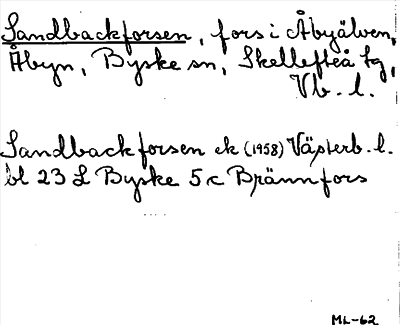 Sandbackforsen, fors i Åbyälven,
Åbyn, Byske sn, Skellefteå tg,
Vb. l.
Sandbackforsen ek (1958) Västerb. l.
bl 23 L Byske 5 c Brännfors
ML-62